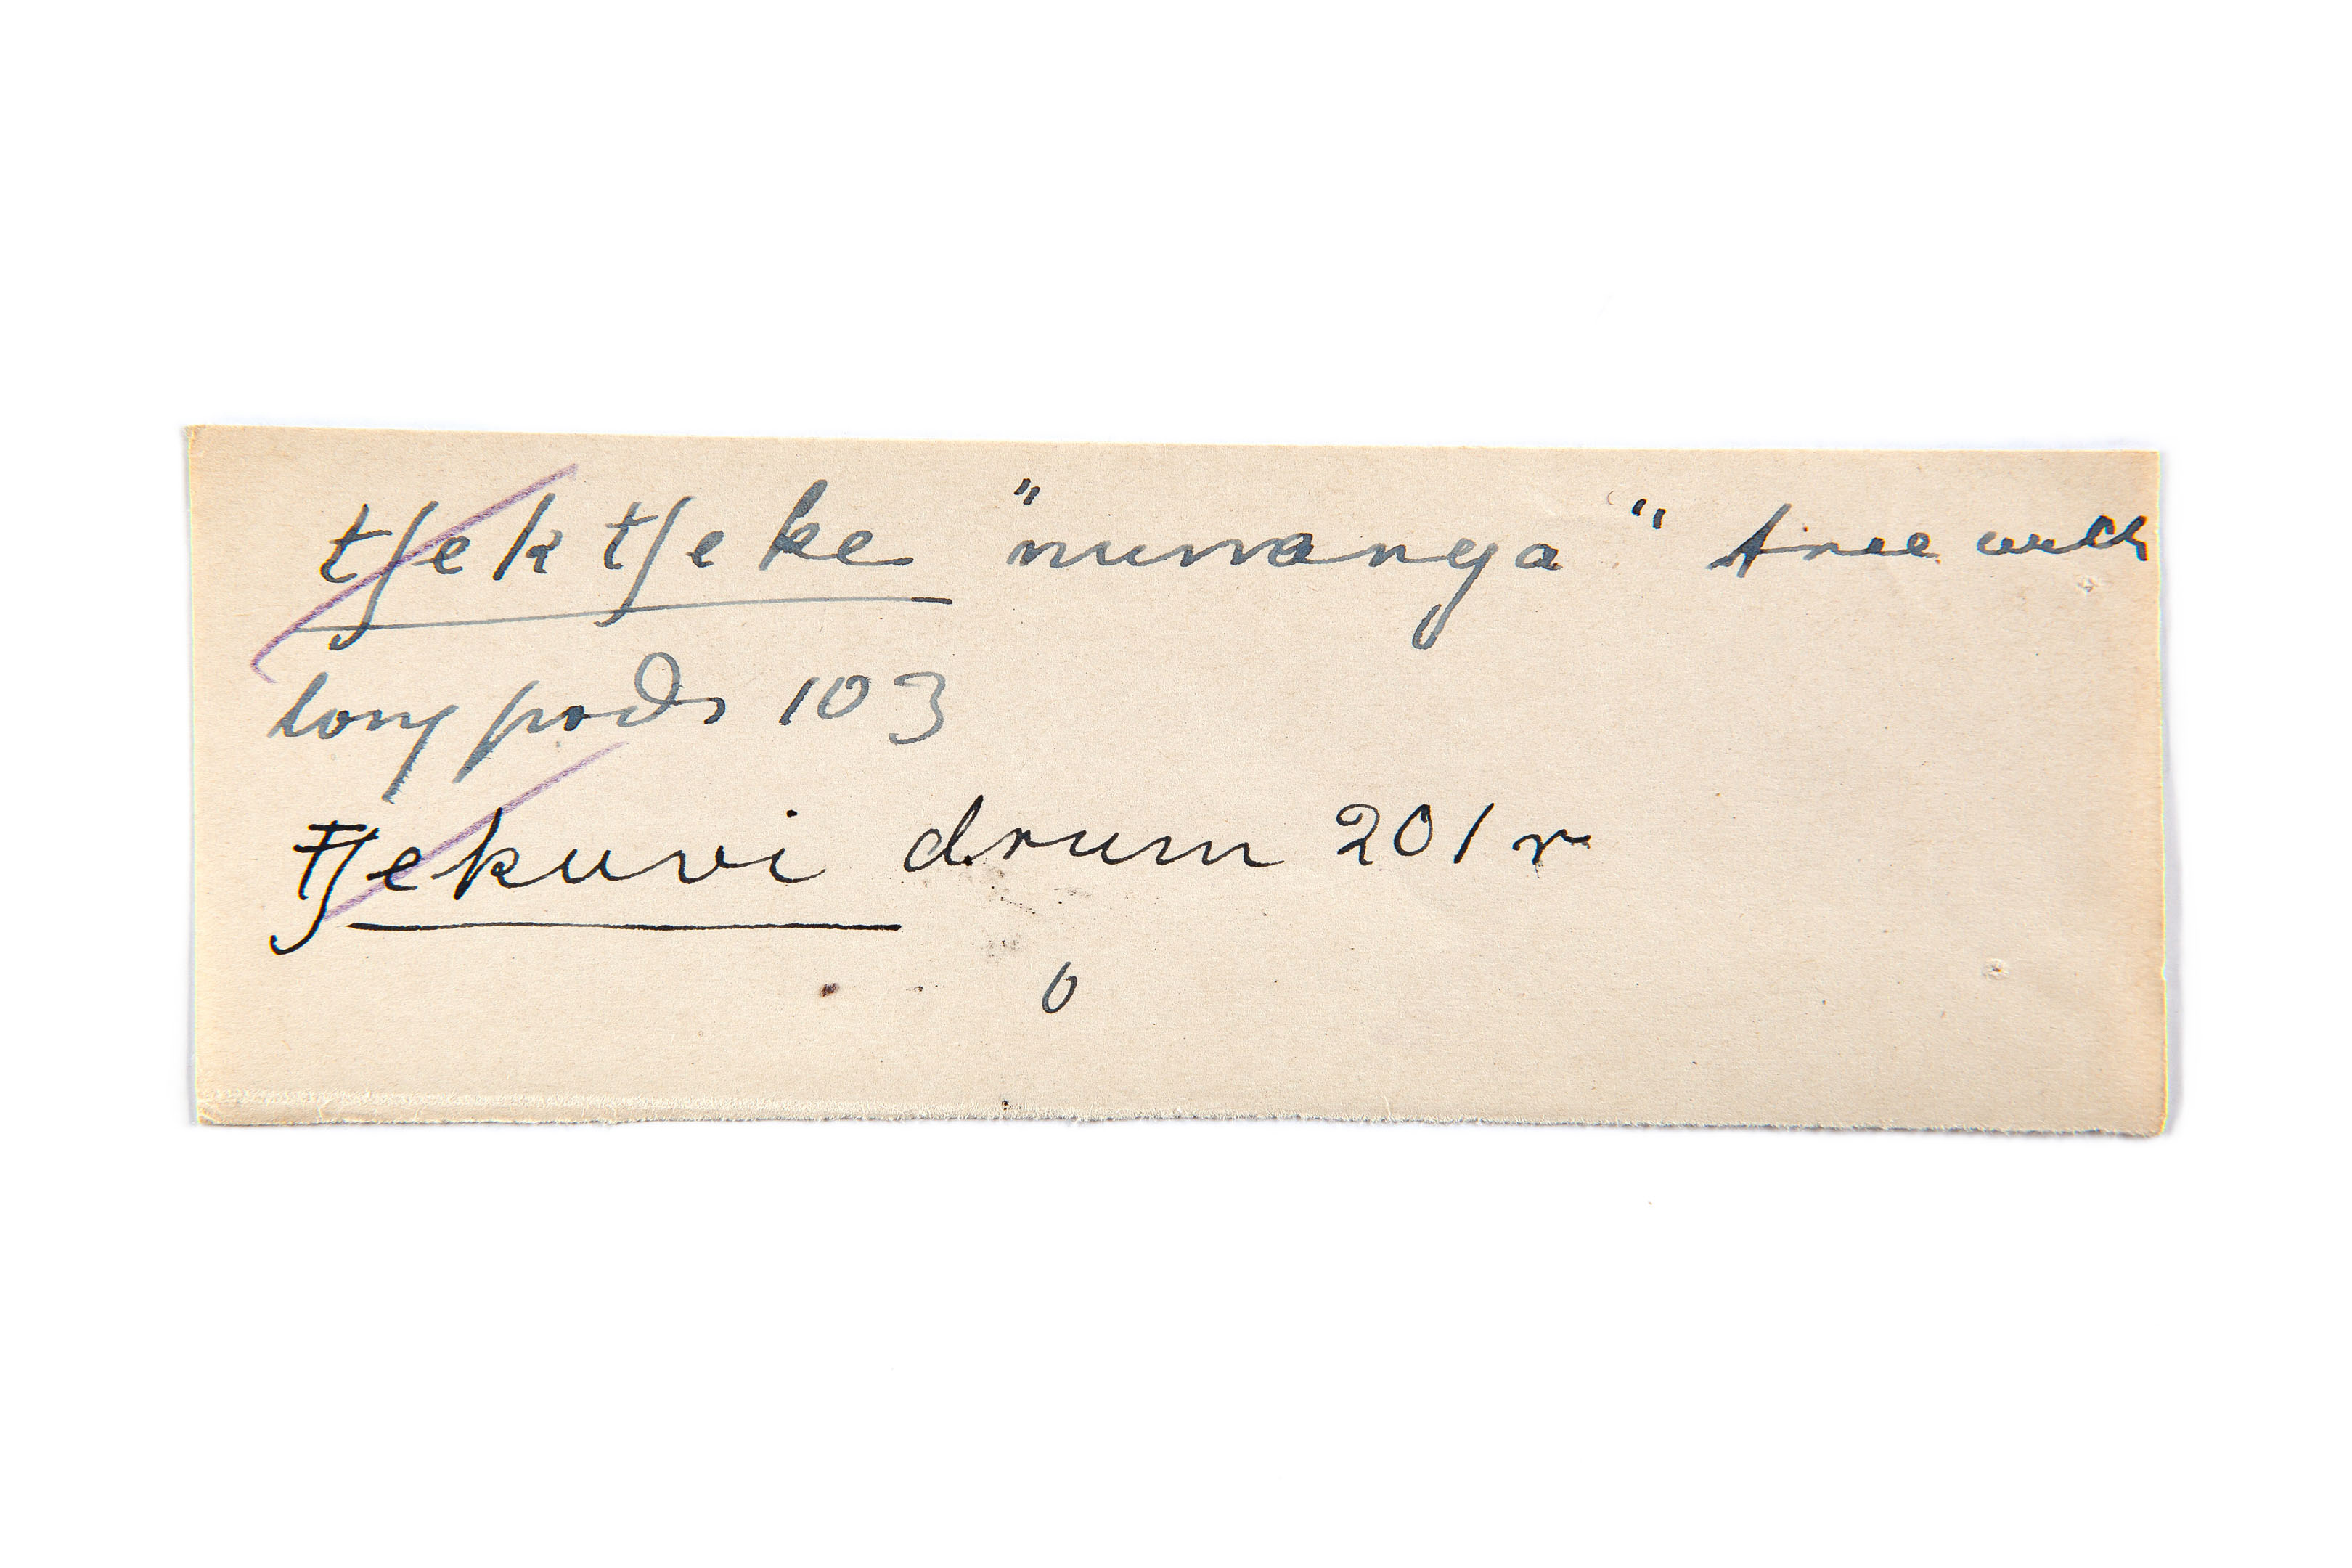 tʃektʃeke "nuwanga" tree with
long pods 103
tʃekuvi drum 201 r